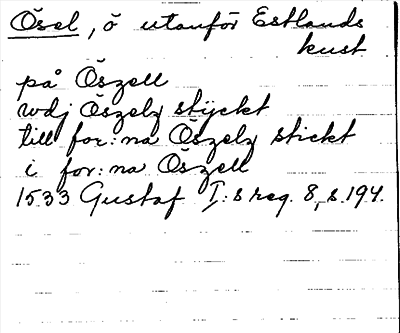 Ösel, ö utanför Estlands
kust
på Öszell
wdj Öszelz styckt
till for:na Öszelz stickt
i for:na Öszell
1533 Gustaf I:s reg. 8, s. 194.